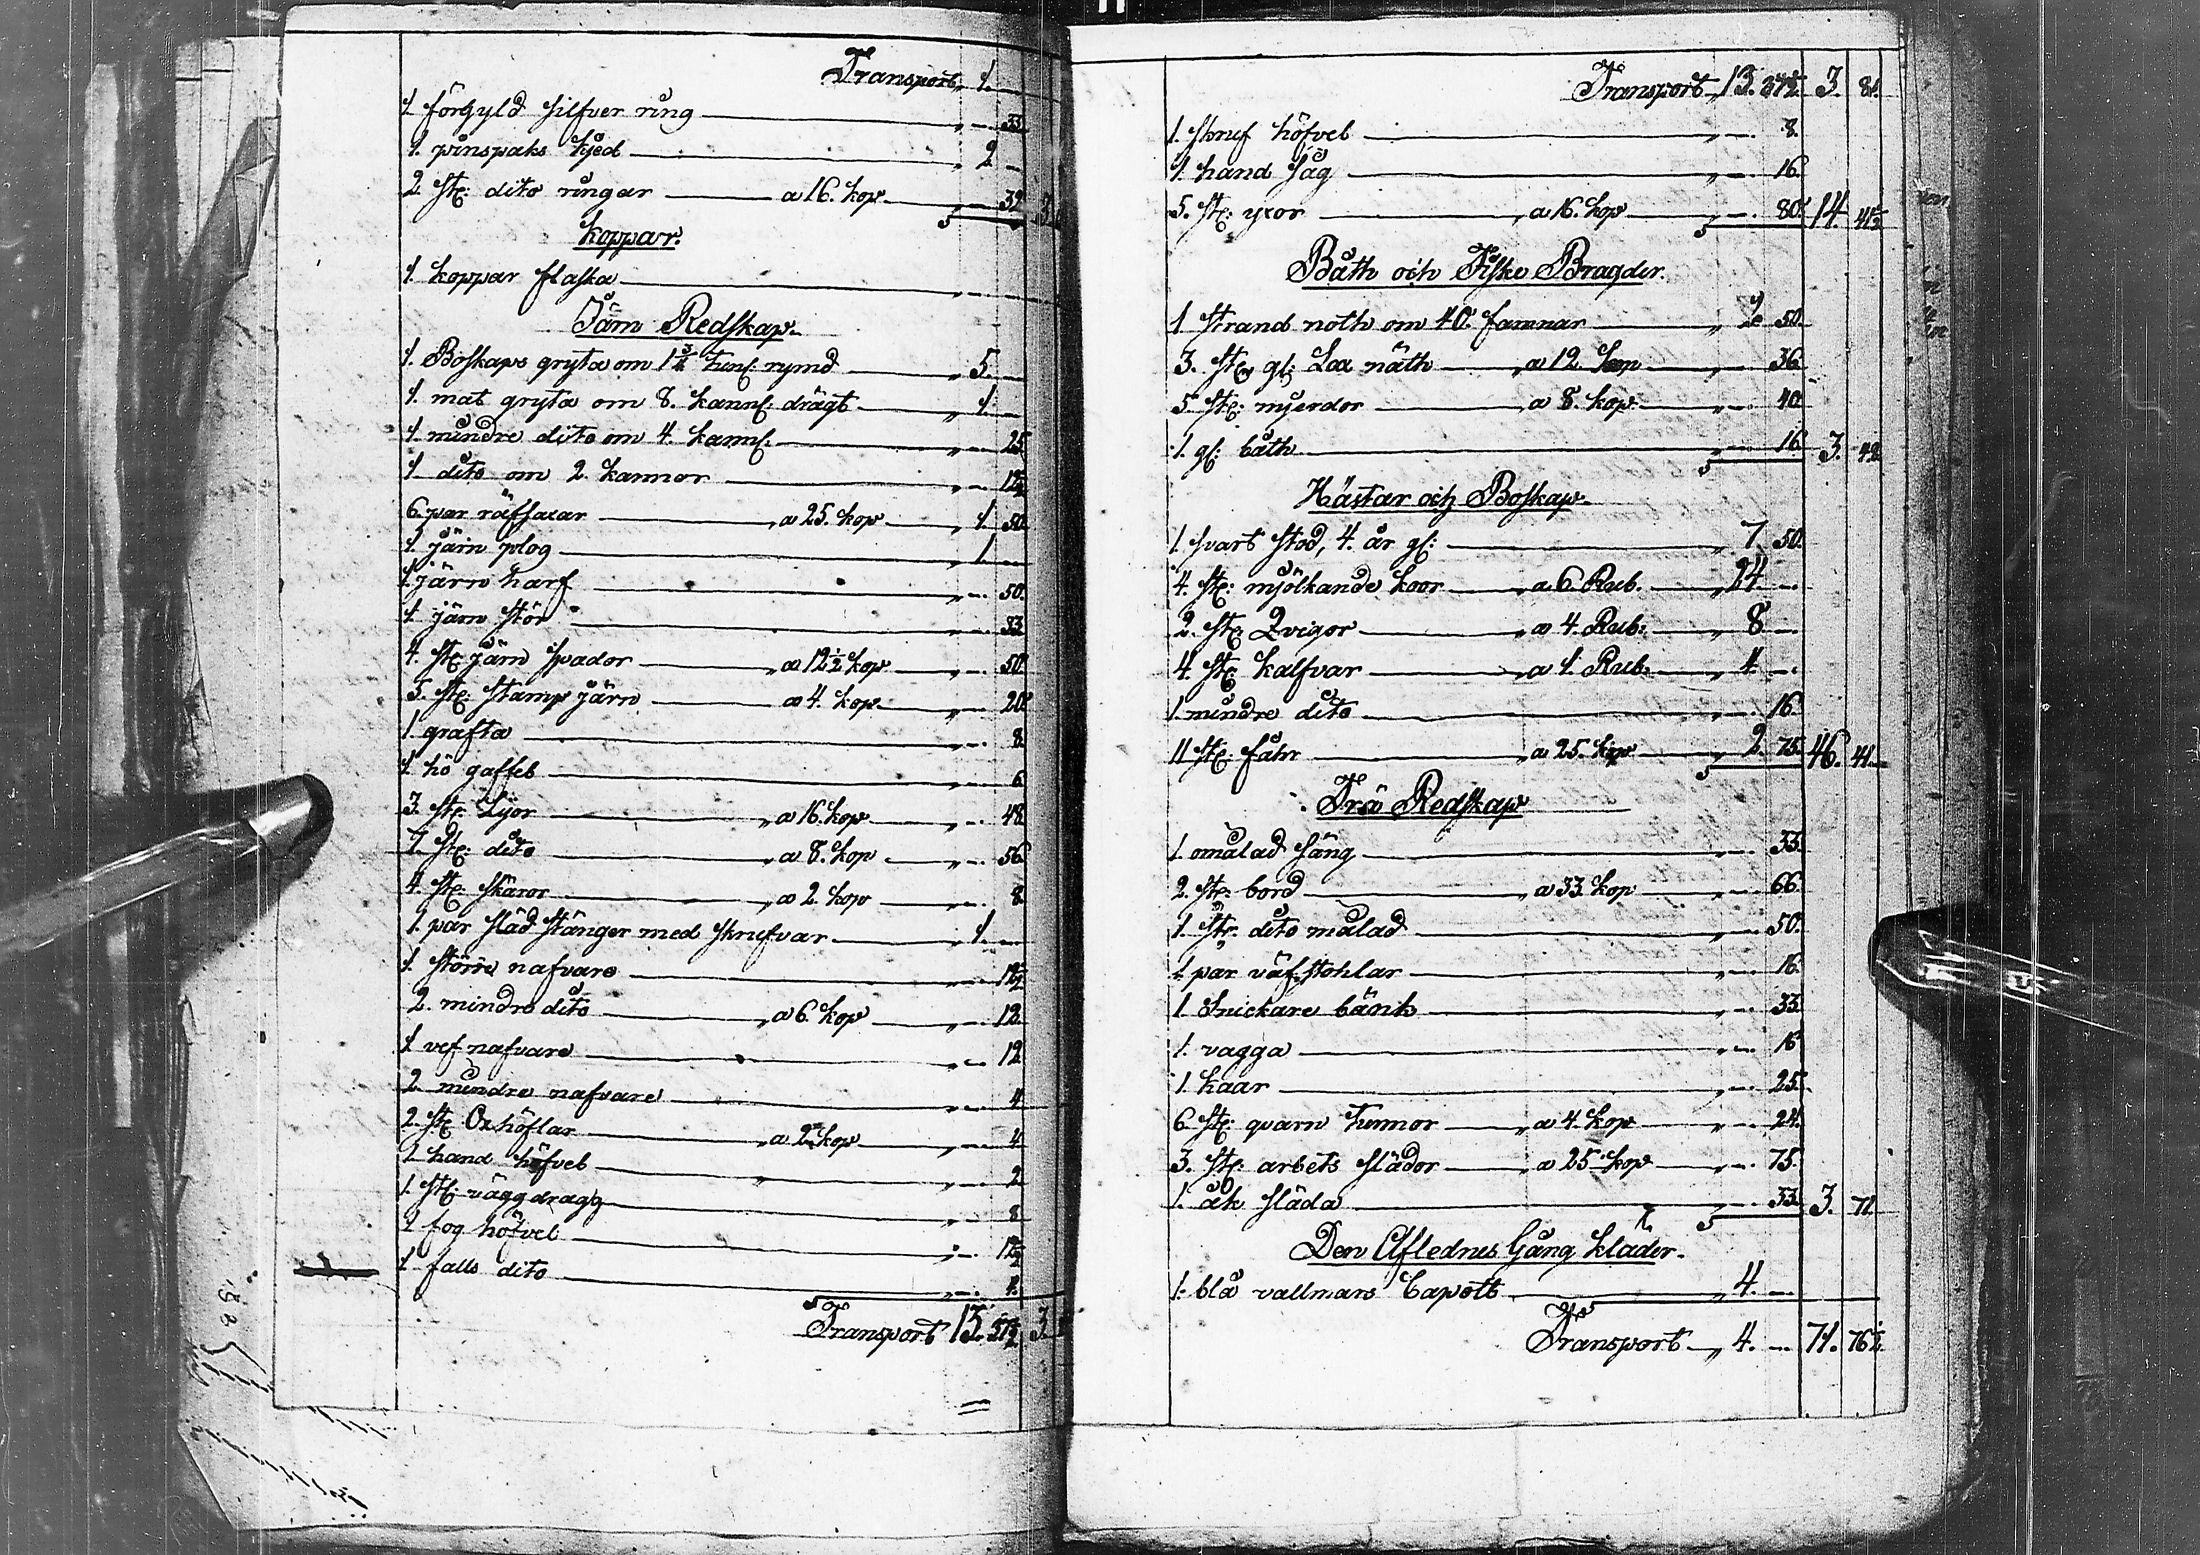 Transport 1.
1 förgyld silfver ring 33
1. pinspaks kjed 2
2 st: dito ringar a 16. kop 32
S
Koppar.
1. koppar flaska
Järn Redskap.
1. Boskaps gryta om 1 3/4 tunl: rymd 5.
1. mat gryta om 8. kannl: drägt 1.
1. mindre dito om 4. kannl: 25
1 dito om 2. kannor 12 1/2
6. par räfsaxar a 25. kop 1 50.
1. järn plog 1.
1. järn harf 50.
1 järn stör 33
4. st: järn spador a 12 1/2 kop 50.
5. st: stamp järn a 4. kop 20.
1 grafta 8.
1 hö gaffel 6
3. st: Lijor a 16. kop 48.
7. st: dito a 8. kop 56
4. st: skäror a 2 kop 8
1. par släd stänger med skrufvar 1
1. större nafvare 12 1/2
2. mindre dito a 6. kop 12
1 vef nafvare 12
2. mindre nafvare 4
2. st: Oxhöflar a 2 kop 4
1 hand höfvel 2
1. st: väggdragg 8
1 fog höfvel 12 1/2
1 falls dito 4.
S
Transport 13. 37 1/2 3.
Transport 13. 37 1/2 3. 81.
1. skruf höfvel 8.
1. hand såg 16.
5. st: yxor a 16. kop 80. 14. 41 1/2
S
Båth och Fiske Bragder.
1 strand noth om 40. famnar 2 50.
3. st: gl: Lax näth a 12 kop 36.
5. st: mjerdor a 8. kop 40
1. gl: båth 16 3. 42
S
Hästar och Boskap.
1. svart stod, 4. år gl: 7 50.
4. st: mjölkande koor a 6 Rub. 24
2. st: Qvigor a 4. Rub: 8
4. st: kalfvar a 1. Rub: 4
1 mindre dito 16
11 st: fåhr a 25. kop 2. 75. 46. 41.
S
Trä Redskap
1. omålad säng 33.
2. st: bord a 33. kop 66.
1. st: dito målad 50.
1 par väf stohlar 16.
1 Snickare bänk 33
1. vagga 16
1. kaar 25.
6 st: qvarn tunnor a 4. kop 24.
3. st: arbets slädor a 25 kop 75.
1. åk släda 33. 3. 71.
S
Den Aflednes Gång kläder.
1. blå vallmars Capott 4.
Transport 4. 71. 76 1/2